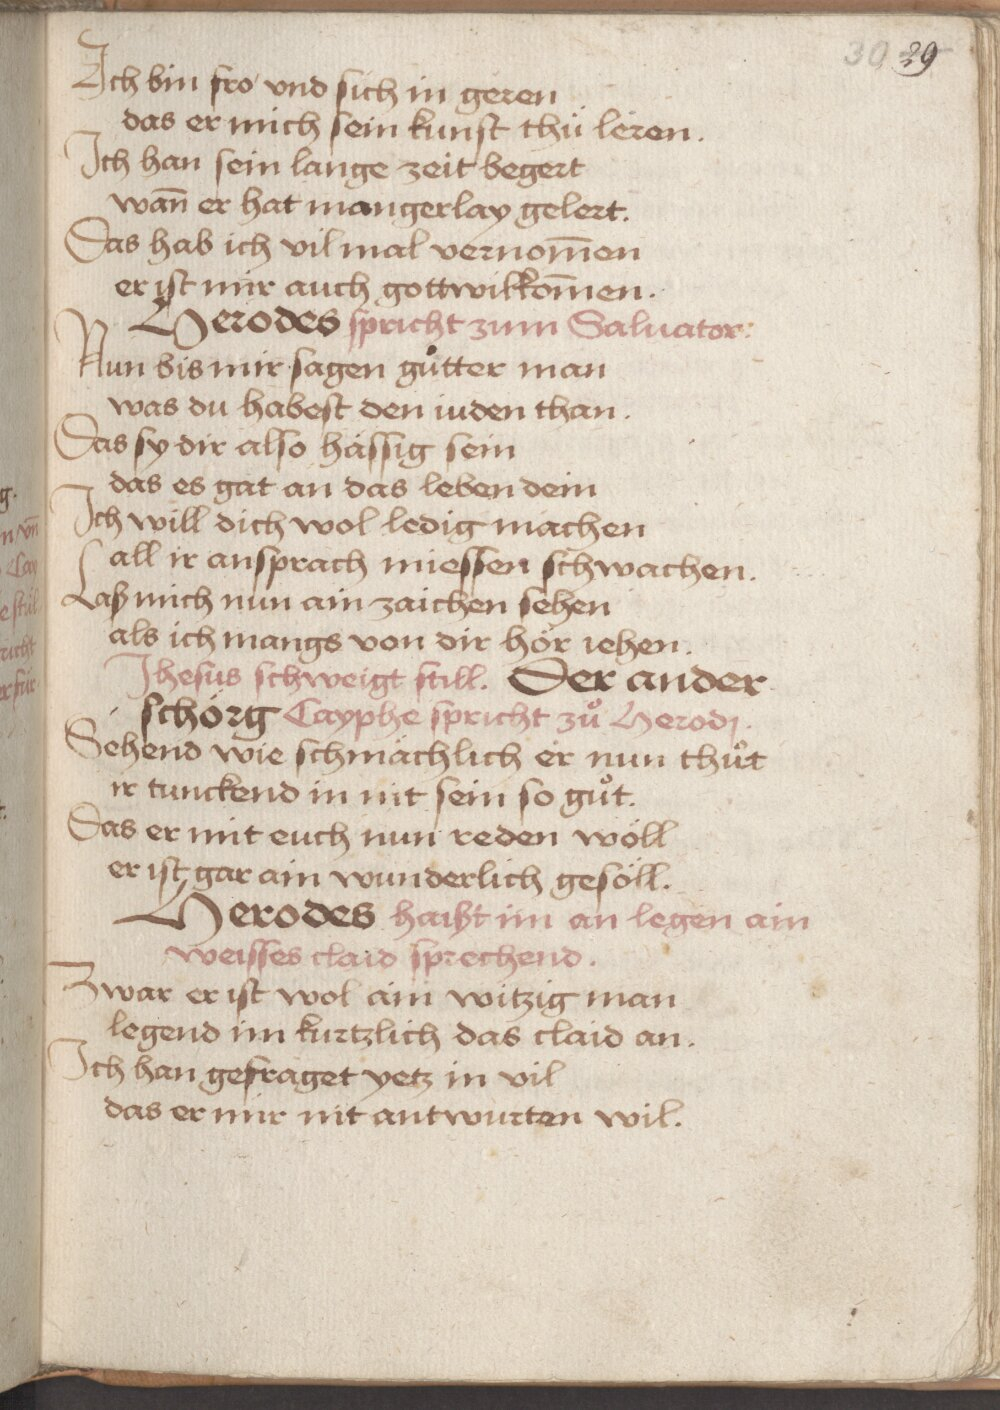 30 29
Ich bin fro vnd sich in geren
das er mich sein kunst thü leren.
Ich han sein lange zeit begert
wan̄ er hat mangerlay gelert.
Das hab ich vil mal vernom̄en
er ist mir auch gottwilkom̄en.
Herodes spricht zum Saluator:
Nun bis mir sagen gůtter man
was du habest den iuden than.
Das sy dir also hässig sein
das es gat an das leben dein
Ich will dich wol ledig machen
all ir ansprach miessen schwachen.
Laß mich nun ain zaichen sehen
als ich mangs von dir hör iehen.
Jhesus schweigt still. Der ander
schörg Cayphe spricht zů Herodj.
Sehend wie schmächlich er nun thůt
ir tunckend in nit sein so gůt.
Das er mit euch nun reden wöll
er ist gar ain wunderlich gesöll.
Herodes haißt im an legen ain
weisses claid sprechend.
Zwar er ist wol ain witzig man
legend im kurtzlich das claid an.
Ich han gefraget yetz in vil
das er mir nit antwurten wil.